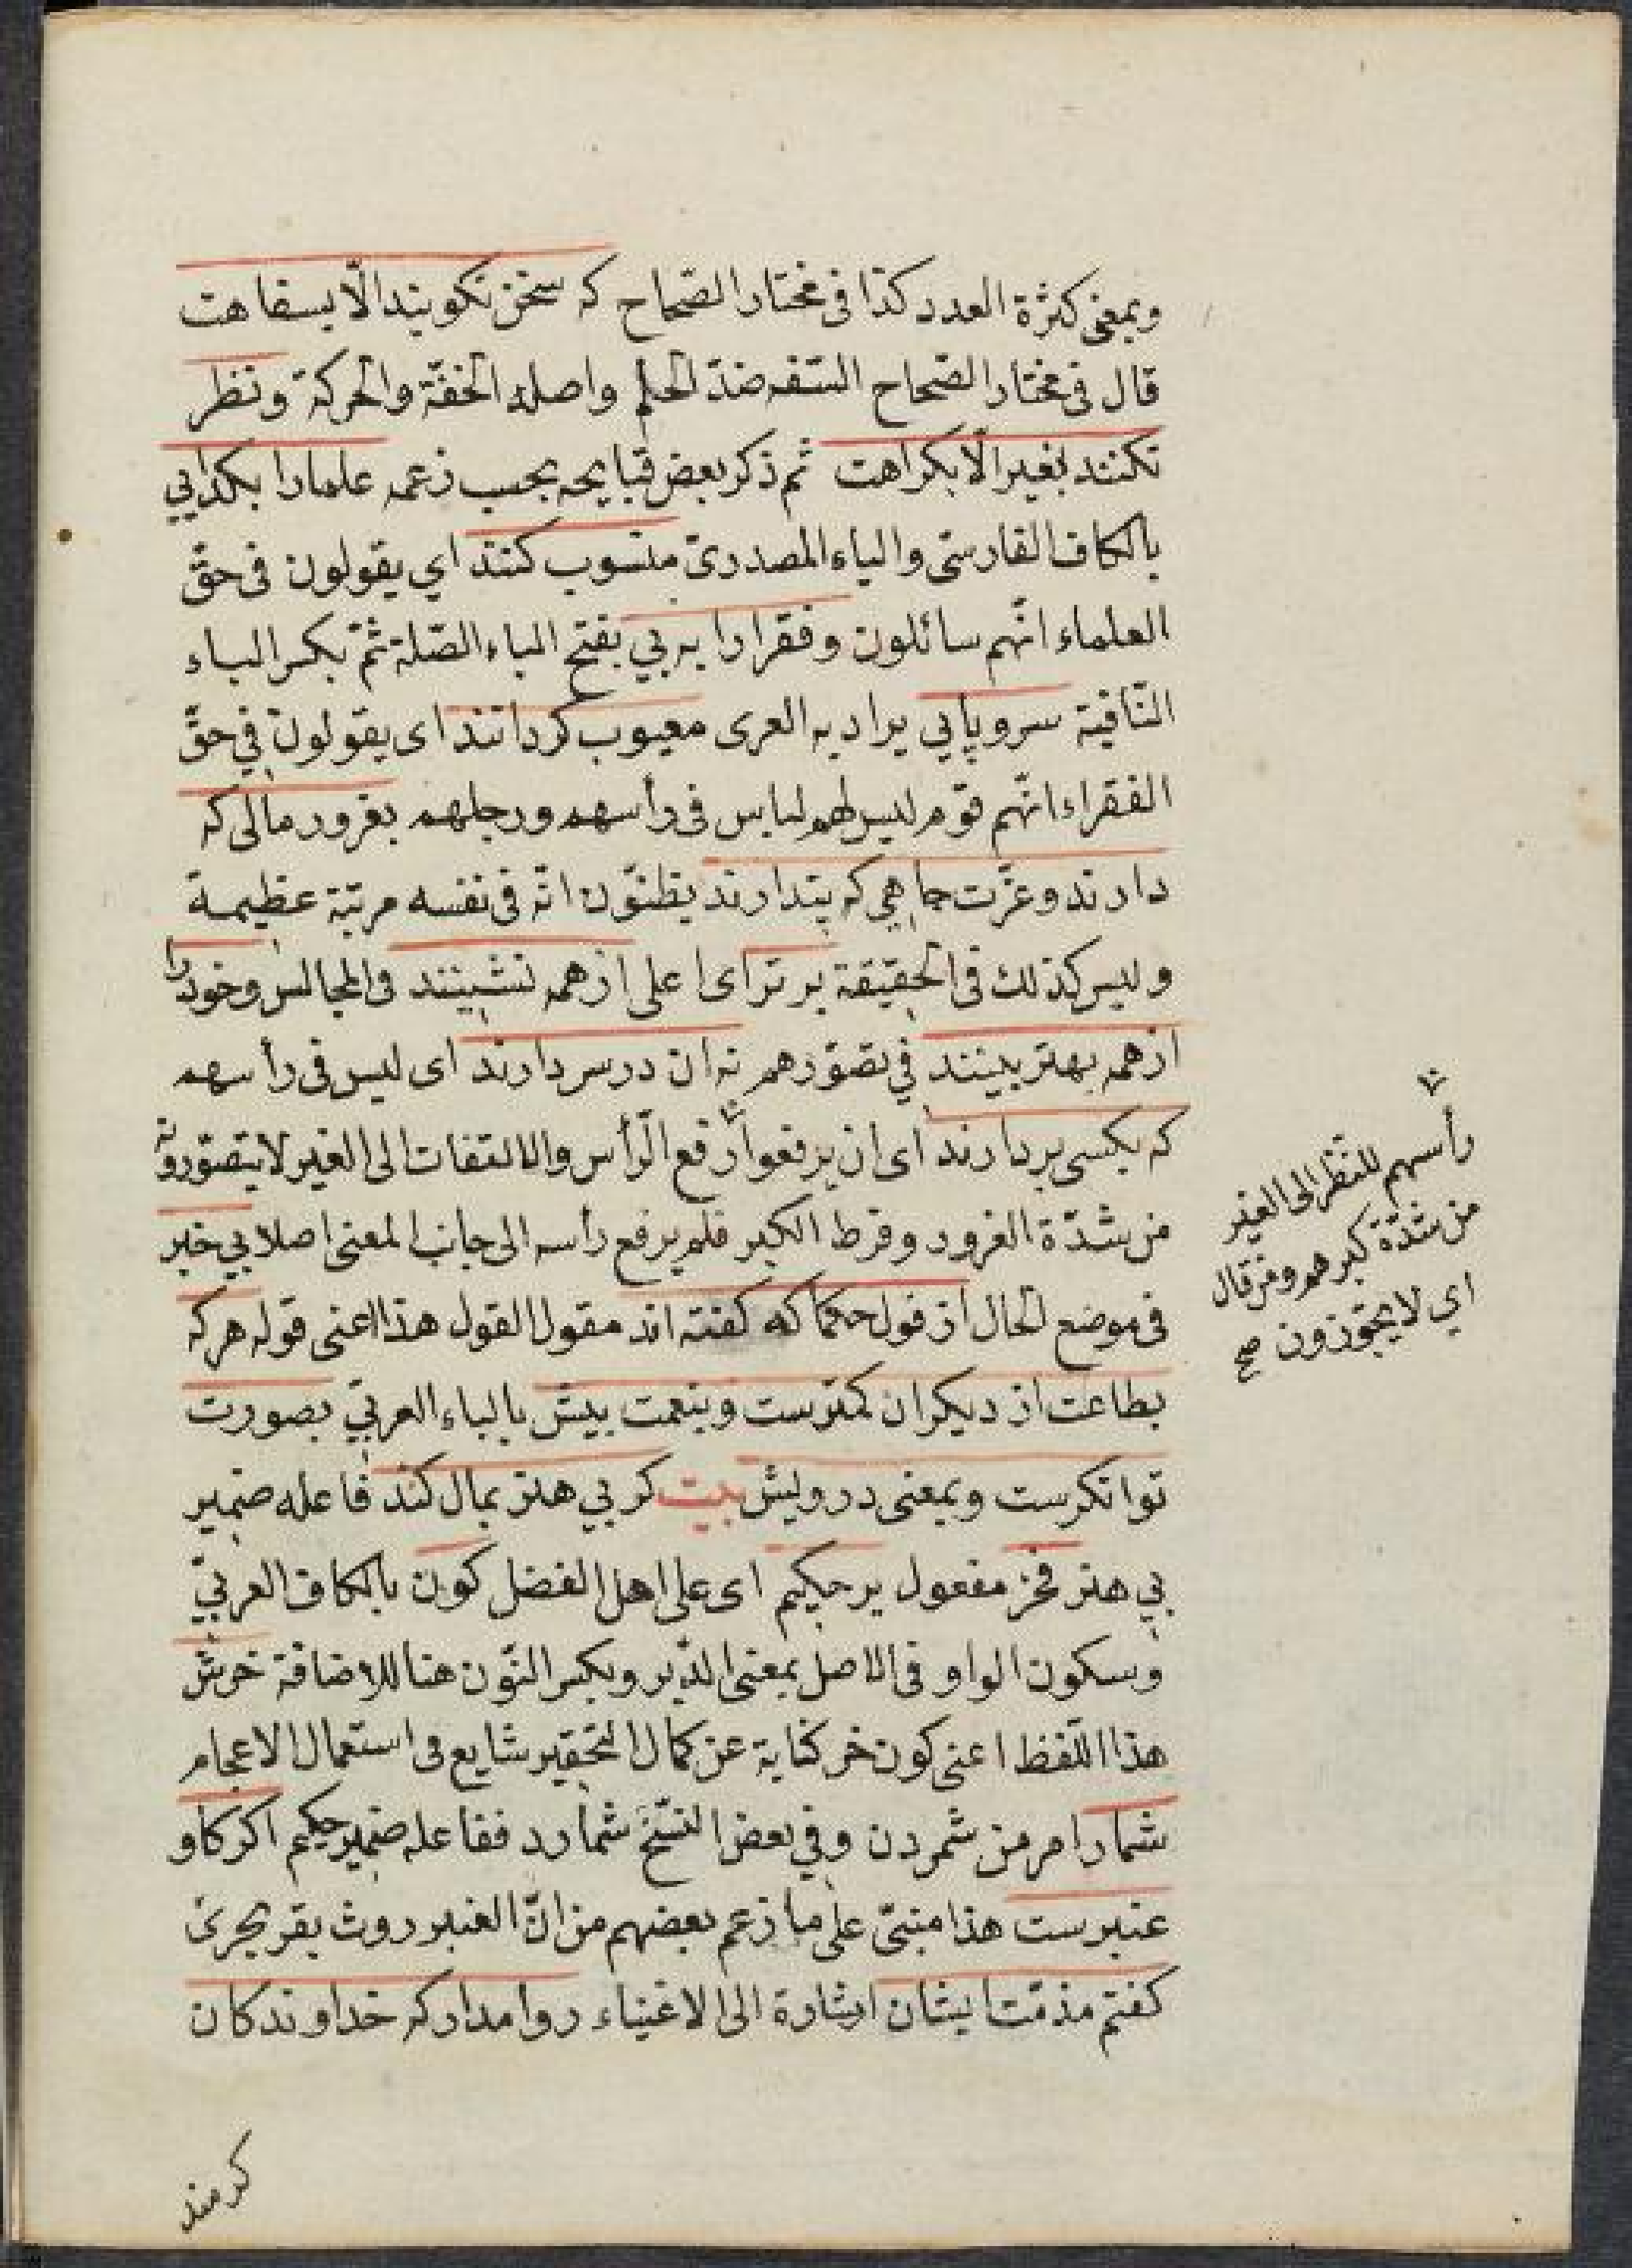 وبمعنى كثرة العدد كذا فى مختار الصّحاح كه سخن نكويند الّا بسفاهت
قال فى مختار الصّحاح السّفه ضدّ الحلم واصله الخفّة والحركة ونظر
نكنند بغير الّا بكراهت ثم ذكر بعض قبايحه بحسب زعمه علمارا بكدايي
بالكاف الفارسىّ والياء المصدرىّ منسوب كنند اي يقولون فى حقّ
العلماء انّهم سائلون وفقرارا به بي بفتح الباء الصّلة ثمّ بكسر الباء
النّافية سروپايي يراد به العرى معيوب كردانند اى يقولون في حقّ
الفقراء انّهم قوم ليس لهم لباس فى رأسهم ورجلهم بغرور مالى كه
دارند وعزّت جاهي كه پندارند يظنّون انّه فى نفسه مرتبة عظيمة
وليس كذلك فى الحقيقة برتر اى اعلى از همه نشينند فى المجالس وخودرا
از همه بهتر بينند في تصوّرهم نه ان در سر دارند اى ليس فى رأسهم
كه بكسى بردارند اى ان يرفعوا رفع الرّأس والالتفات الى الغير لا يتصوّرونه
من شدّة الغرور وفرط الكبر فلم يرفع رأسه الى جانب المعنى اصلا بي خبر
فى موضع الحال از قول حكما كه كفته اند مقول القول هذا اعنى قوله هركه
بطاعت از ديكران كمترست وبنعمت بيش بالباء العربيّ بصورت
توانكرست وبمعنى درويش بيت كر بي هنر بمال كند فاعله ضمير
بي هنر فخر مفعول بر حكيم اى على اهل الفضل كون بالكاف العربيّ
وسكون الواو فى الاصل بمعنى الدّبر وبكسر النّون هنا للاضافة خرش
هذا اللّفظ اعنى كون خر كناية عن كمال التحقير شايع فى استعمال الاعجام
شمار امر من شمردن وفي بعض النّسخ شمارد ففاعله ضمير حكيم اكر كاو
عنبرست هذا مبنىّ على ما زعم بعضهم من انّ العنبر روث بقر بحرىّ
كفتم مذمّت ايشان اشارة الى الاغنياء روا مدار كه خداوندكان
رأسهم للنظر الى الغير
من شدّة كبرهم ومن قال
اي لا يجوّزون صح
كرمند